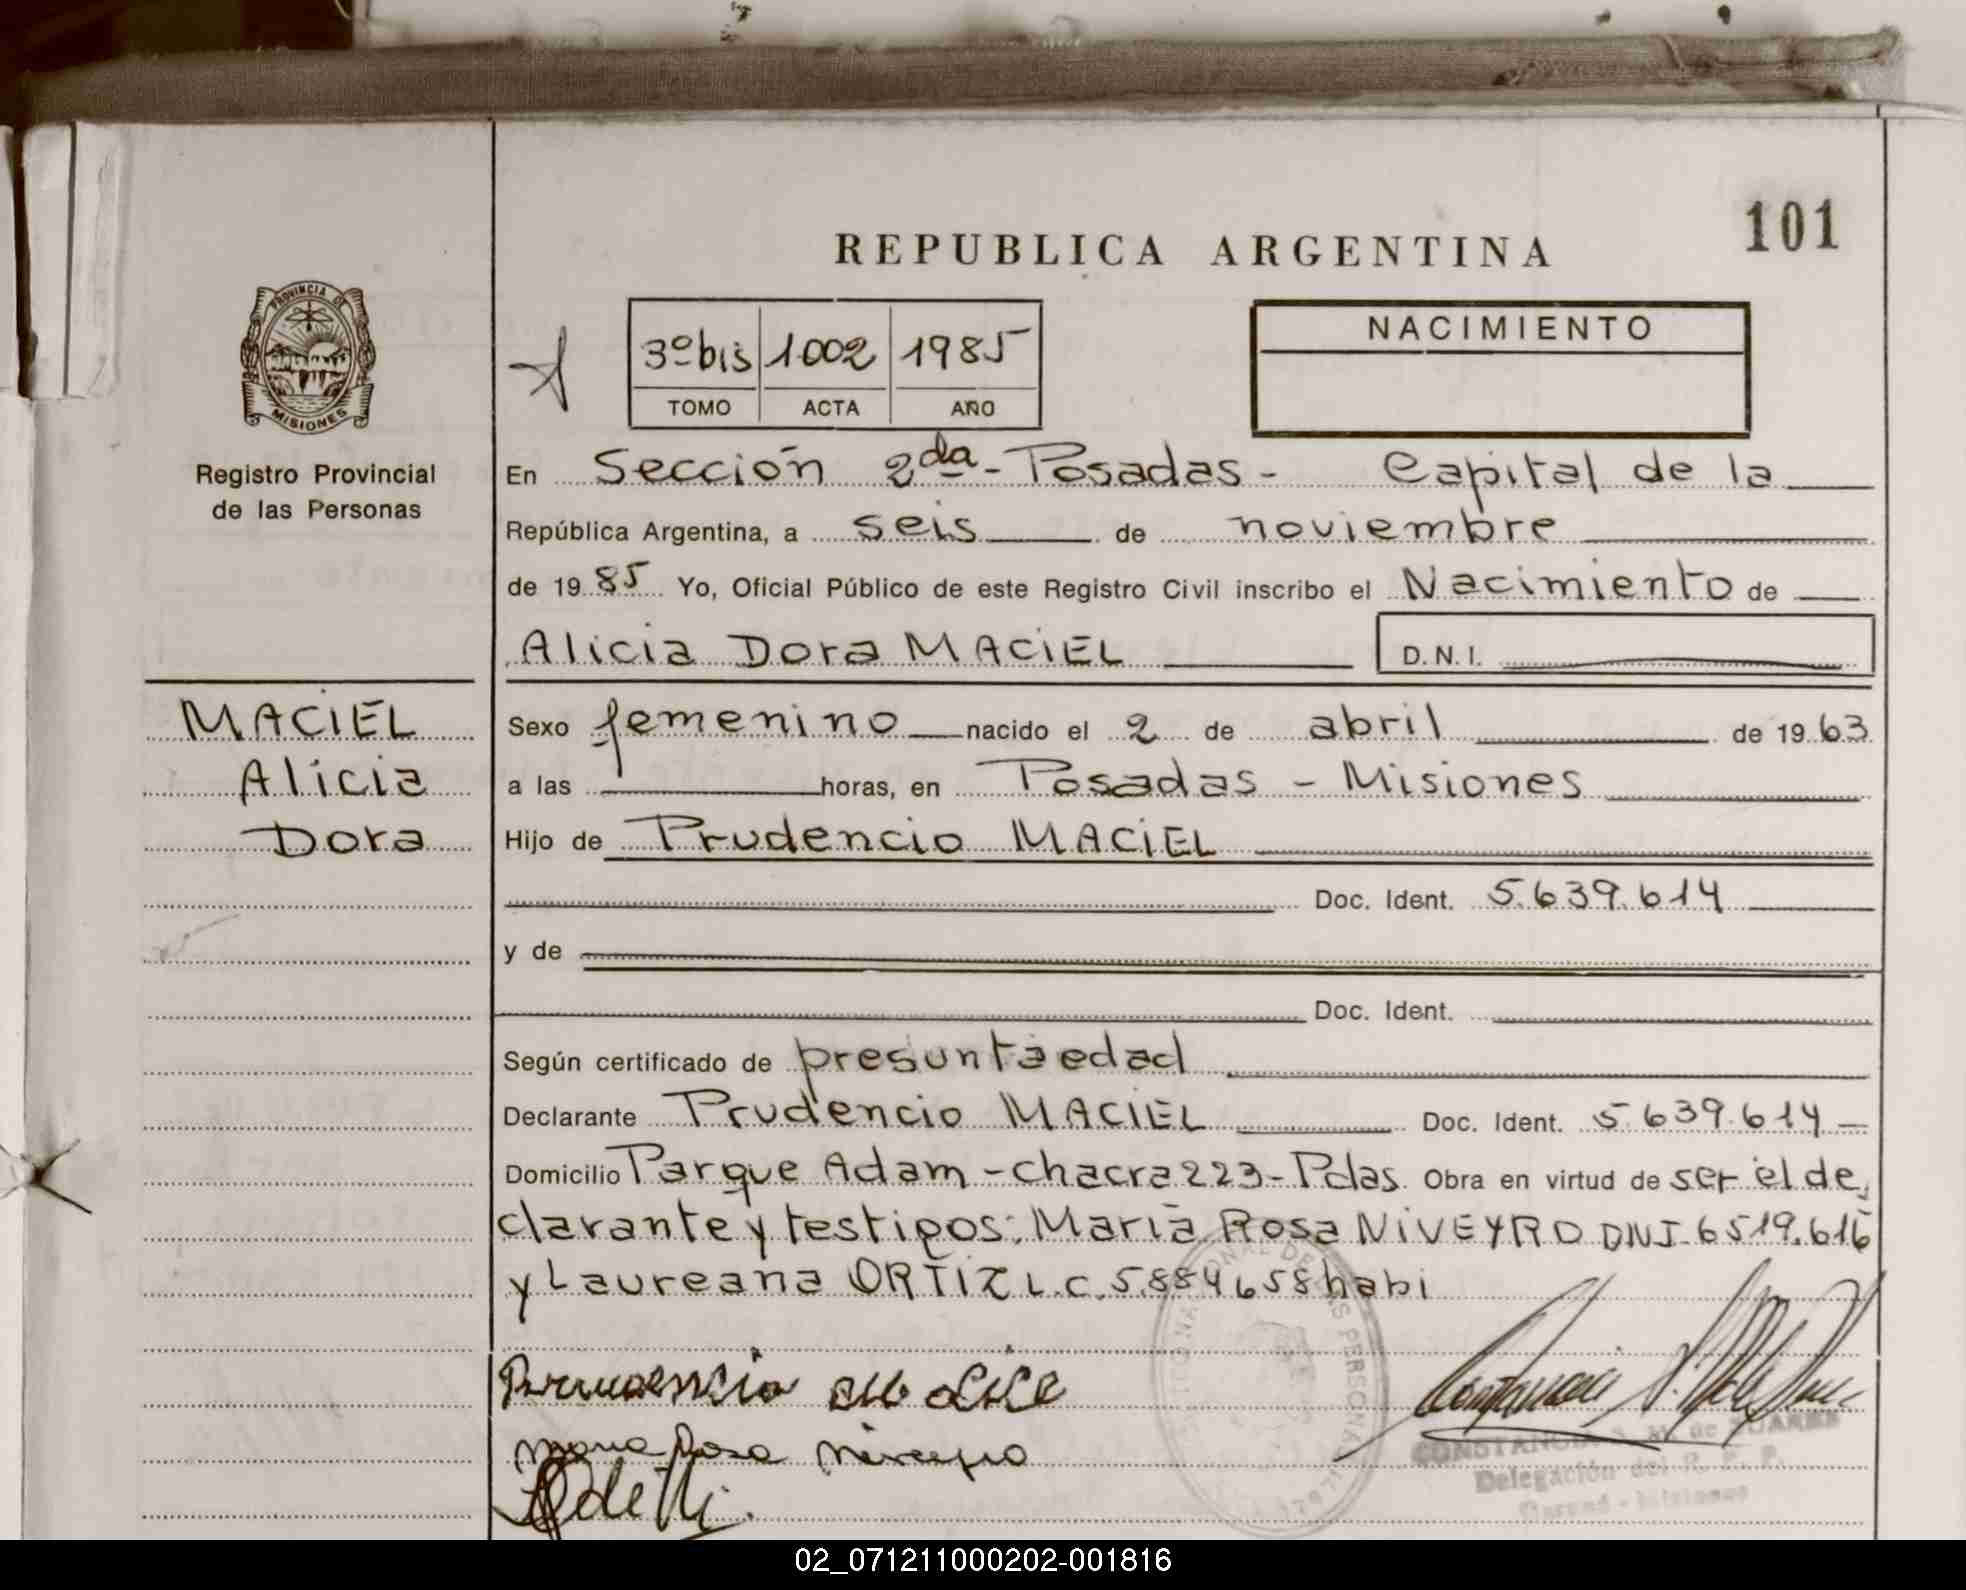 REPUBLICA ARGENTINA
101
PROVINCIA DE
MISIONES
Registro Provincial
de las Personas
3º bis 1002 1985
TOMO ACTA AÑO
NACIMIENTO
En Sección 2da - Posadas - Capital de la
República Argentina, a seis de noviembre
de 1985 Yo, Oficial Público de este Registro Civil inscribo el Nacimiento de
Alicia Dora MACIEL D.N.I.
MACIEL
Alicia
Dora
Sexo femenino nacido el 2 de abril de 1963
a las horas, en Posadas - Misiones
Hijo de Prudencio MACIEL
Doc. Ident. 5.639.614
y de
Doc. Ident.
Según certificado de presunta edad
Declarante Prudencio MACIEL Doc. Ident. 5.639.614 -
Domicilio Parque Adam - chacra 223 - Pdas. Obra en virtud de ser el de
clarante y testigos: Maria Rosa NIVEYRO DNI 6519.616
y Laureana ORTIZ L.C. 5.884658 habi
Maria Rosa Niveyro
CONSTANCIA de SUAREZ
Delegación del R. P. P.
02_071211000202-001816